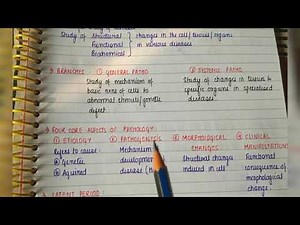 Study of Structural changes in the cell/tissues/organs
Functional in various diseases
Biochemical
BRANCHES ① GENERAL PATHO ② SYSTEMIC PATHO
Study of mechanism of Study of changes in tissues &
basic rxns of cells to specific organs in specialised
abnormal stimuli/genetic diseases
defect
FOUR CORE ASPECTS OF PATHOLOGY:
① ETIOLOGY ② PATHOGENESIS ③ MORPHOLOGICAL ④ CLINICAL
CHANGES MANIFESTATIONS
Refers to cause: Mechanism Structural changes Functional
① Genetic development induced in cell consequences of
② Aquired disease morphological
change.
LATENT PERIOD: